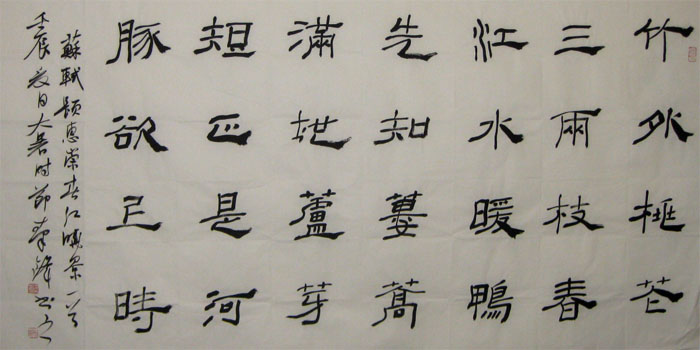 竹外桃花
三兩枝春
江水暖鴨
先知蔞蒿
滿地蘆芽
短正是河
豚欲上時
蘇軾題惠崇春江曉景一首
壬辰夏日大暑时節